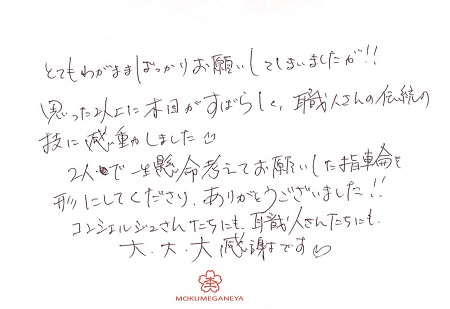 とてもわがままばっかりお願いしてしまいましたが!!
思った以上に木目がすばらしく、職人さんの伝統の
技に感動しました
2人で一生懸命考えてお願いした指輪を
形にしてくださり、ありがとうございました!!
コンシェルジュさんたちにも、職人さんたちにも、
大、大、大感謝です
杢
MOKUMEGANEYA